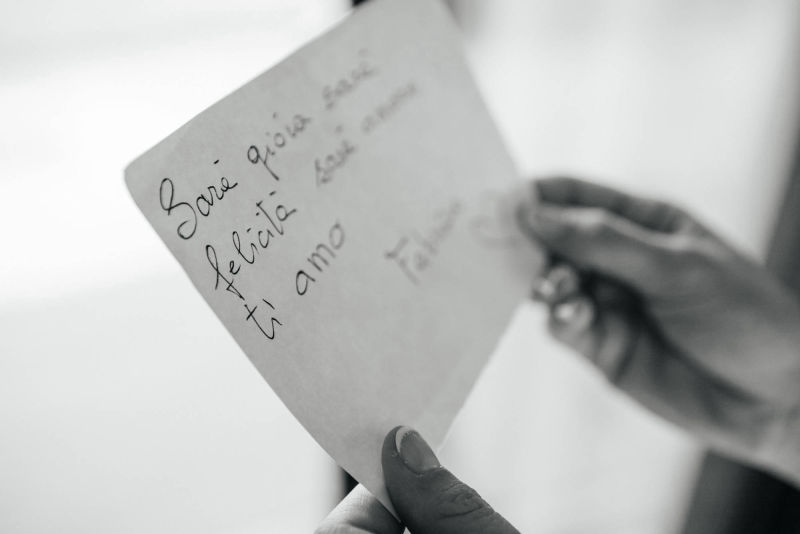 Sarà gioia sarà
felicità sarà amore
ti amo